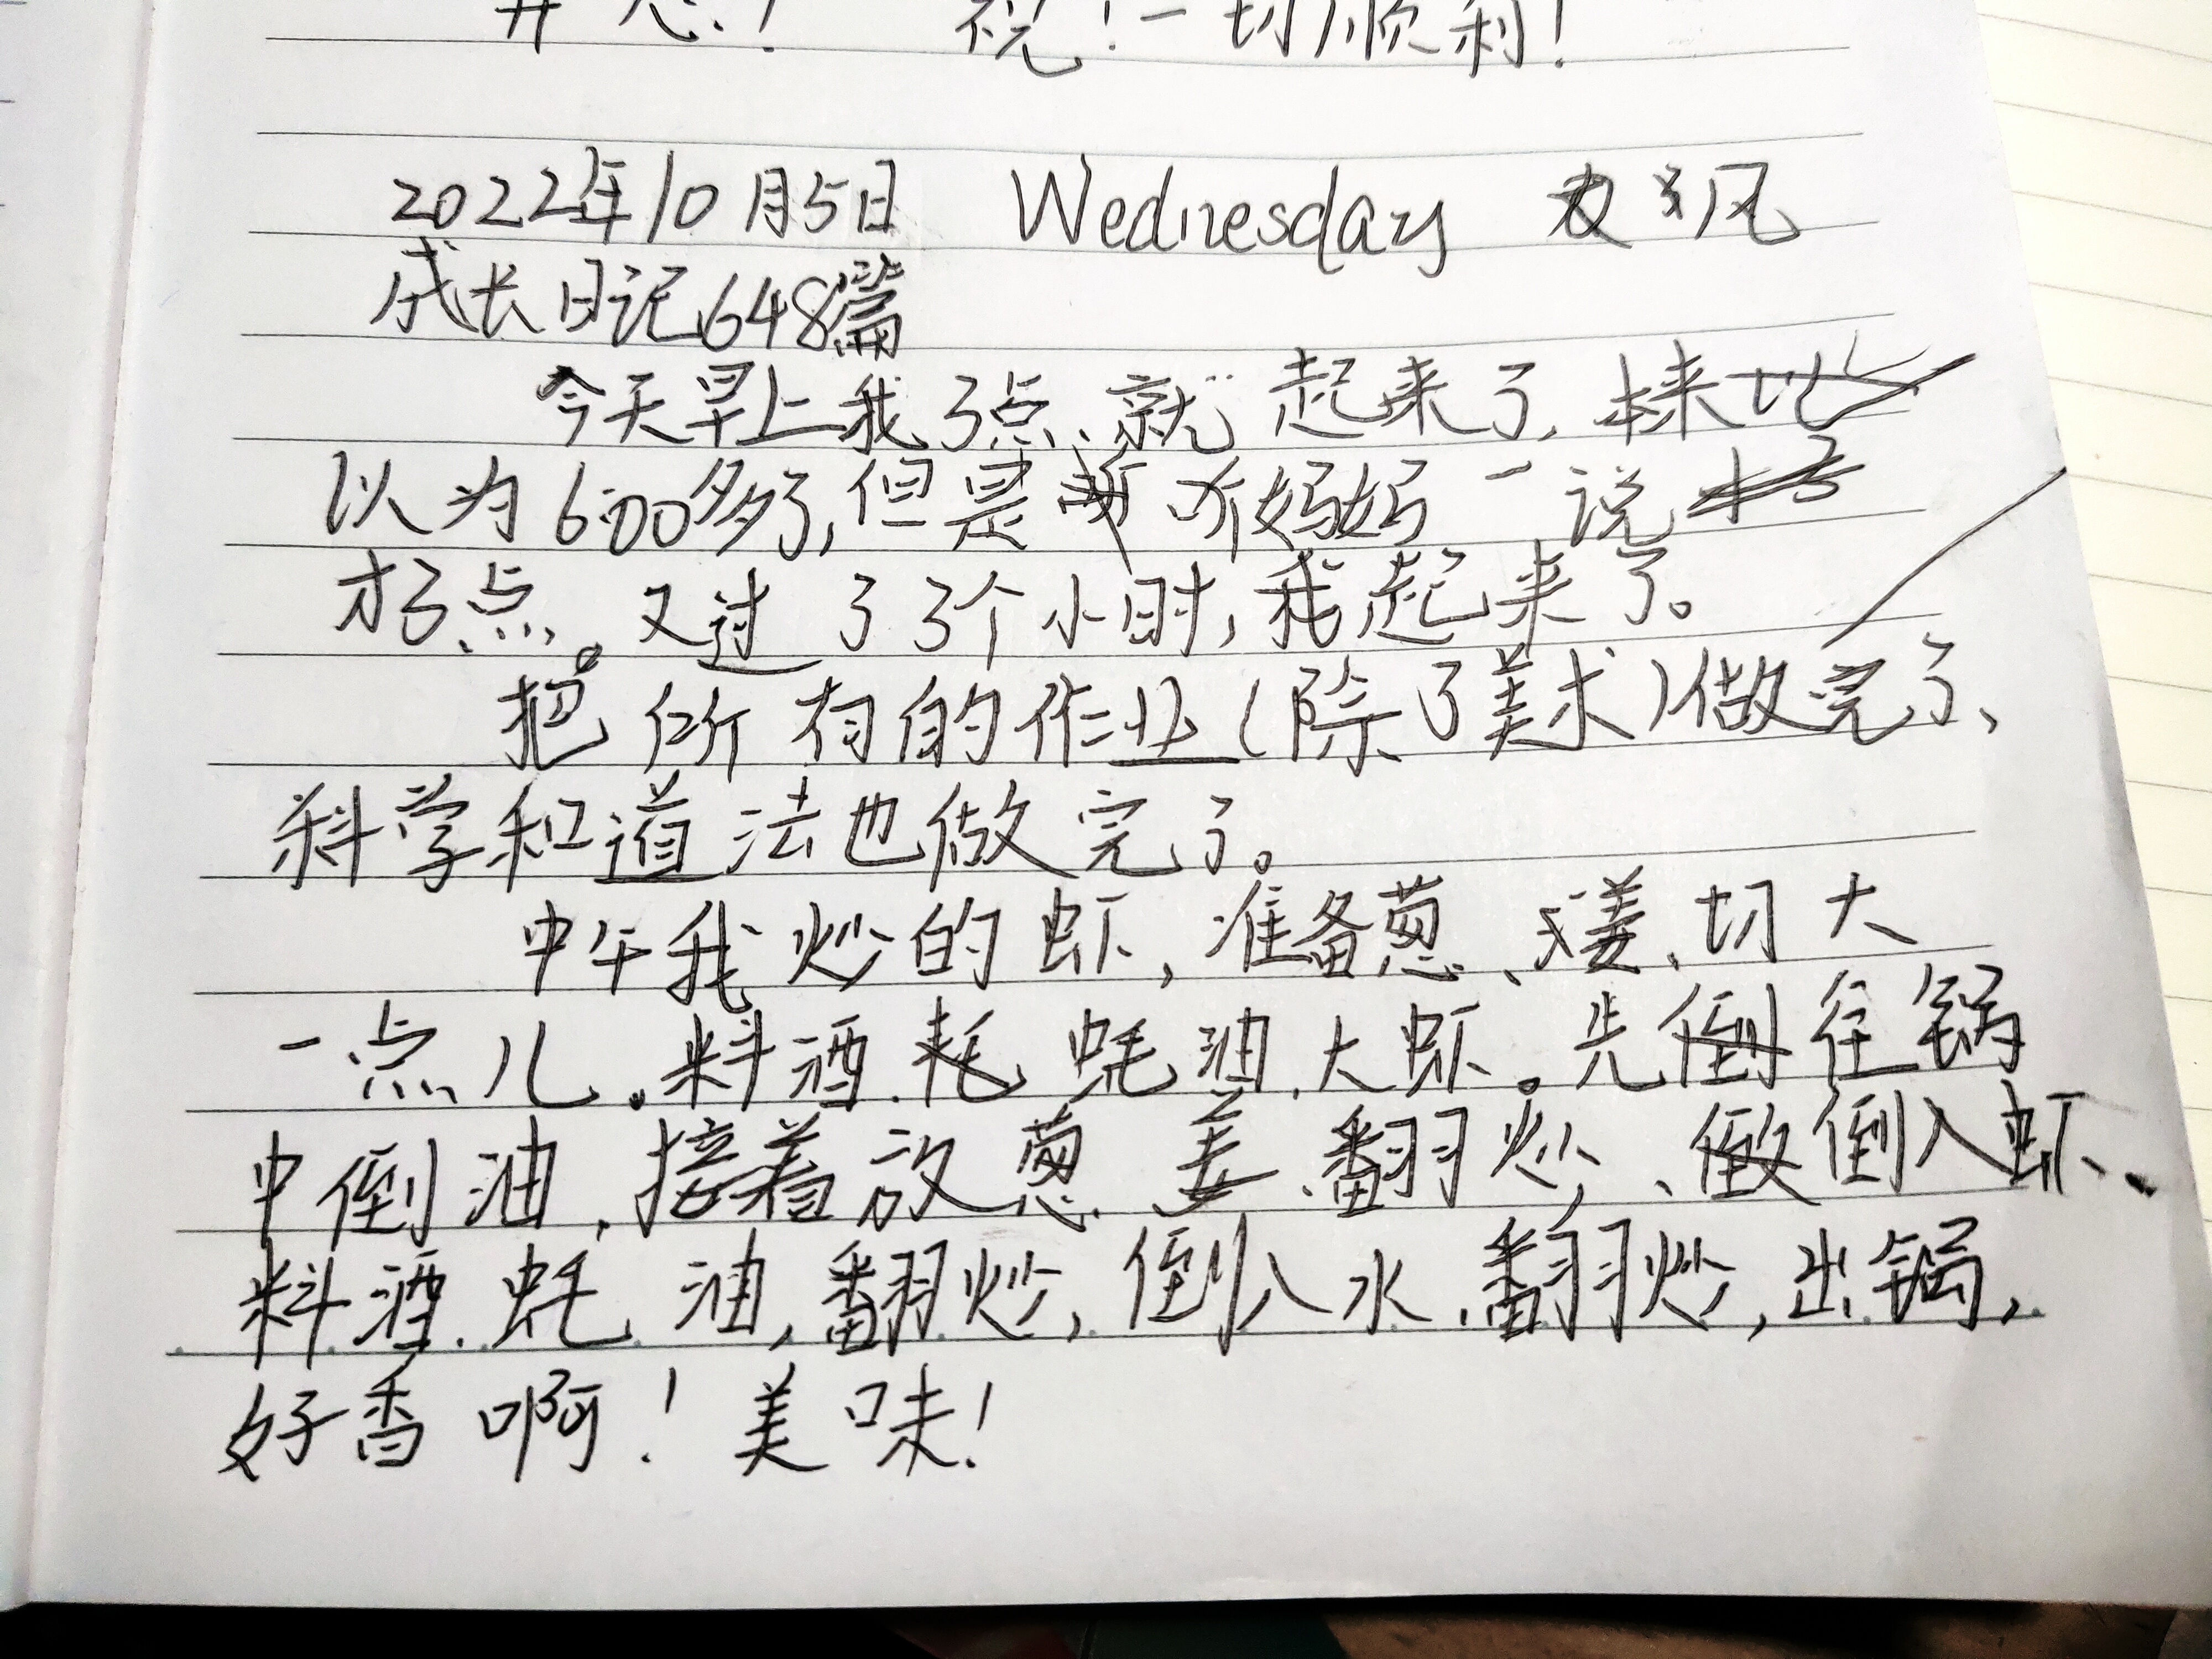 开心！ 祝！一切顺利！
2022年10月5日 Wednesday 风
成长日记648篇
今天早上我3点就起来了，本来
以为6:00多了，但是听妈妈一说
才3点。又过了3个小时，我起来了。
把所有的作业（除了美术）做完了、
科学和道法也做完了。
中午我炒的虾，准备葱、姜、切大
一点儿。料酒、蚝油、大虾。先往锅
中倒油，接着放葱、姜、翻炒、倒入虾、
料酒、蚝油，翻炒，倒入水、翻炒，出锅，
好香啊！美味！